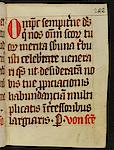 Omps sempiterne ds
q nos omi scor tu
or merita sub una tribu
isti celebritate venera
ri qs ut desideratam no
bis tue ppiciacionis
habundanciam multi
plicatis intercessoribus
largiaris. P. von